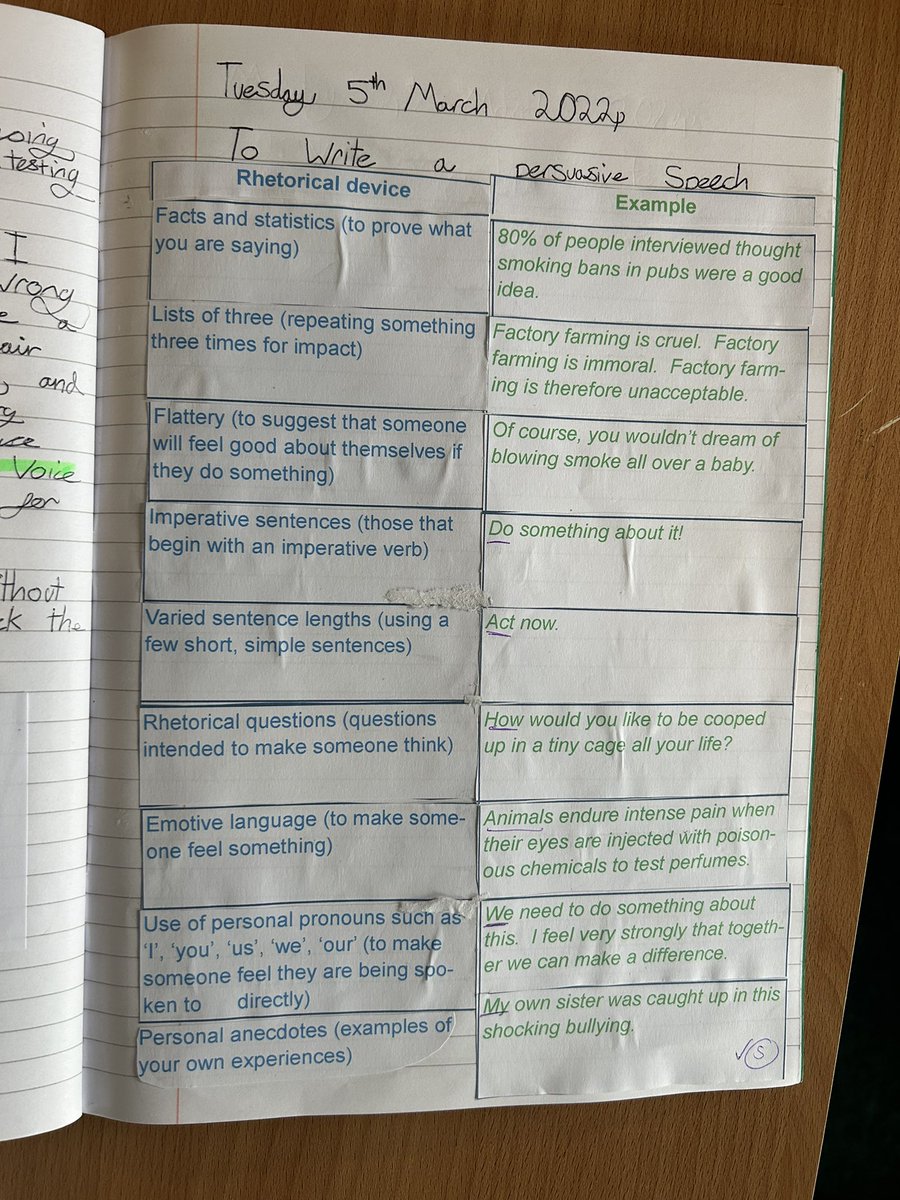 oing,
testing
I
wrong
a
air
, and
Voice
for
ithout
ck the
Tuesday 5th March 2022
To Write a persuasive Speech
Rhetorical device
Example
Facts and statistics (to prove what
you are saying)
80% of people interviewed thought
smoking bans in pubs were a good
idea.
Lists of three (repeating something
three times for impact)
Factory farming is cruel. Factory
farming is immoral. Factory farm-
ing is therefore unacceptable.
Flattery (to suggest that someone
will feel good about themselves if
they do something)
Of course, you wouldn't dream of
blowing smoke all over a baby.
Imperative sentences (those that
begin with an imperative verb)
Do something about it!
Varied sentence lengths (using a
few short, simple sentences)
Act now.
Rhetorical questions (questions
intended to make someone think)
How would you like to be cooped
up in a tiny cage all your life?
Emotive language (to make some-
one feel something)
Animals endure intense pain when
their eyes are injected with poison-
ous chemicals to test perfumes.
Use of personal pronouns such as
'I', 'you', 'us', 'we', 'our' (to make
someone feel they are being spo-
ken to directly)
We need to do something about
this. I feel very strongly that togeth-
er we can make a difference.
Personal anecdotes (examples of
your own experiences)
My own sister was caught up in this
shocking bullying.
✓ S